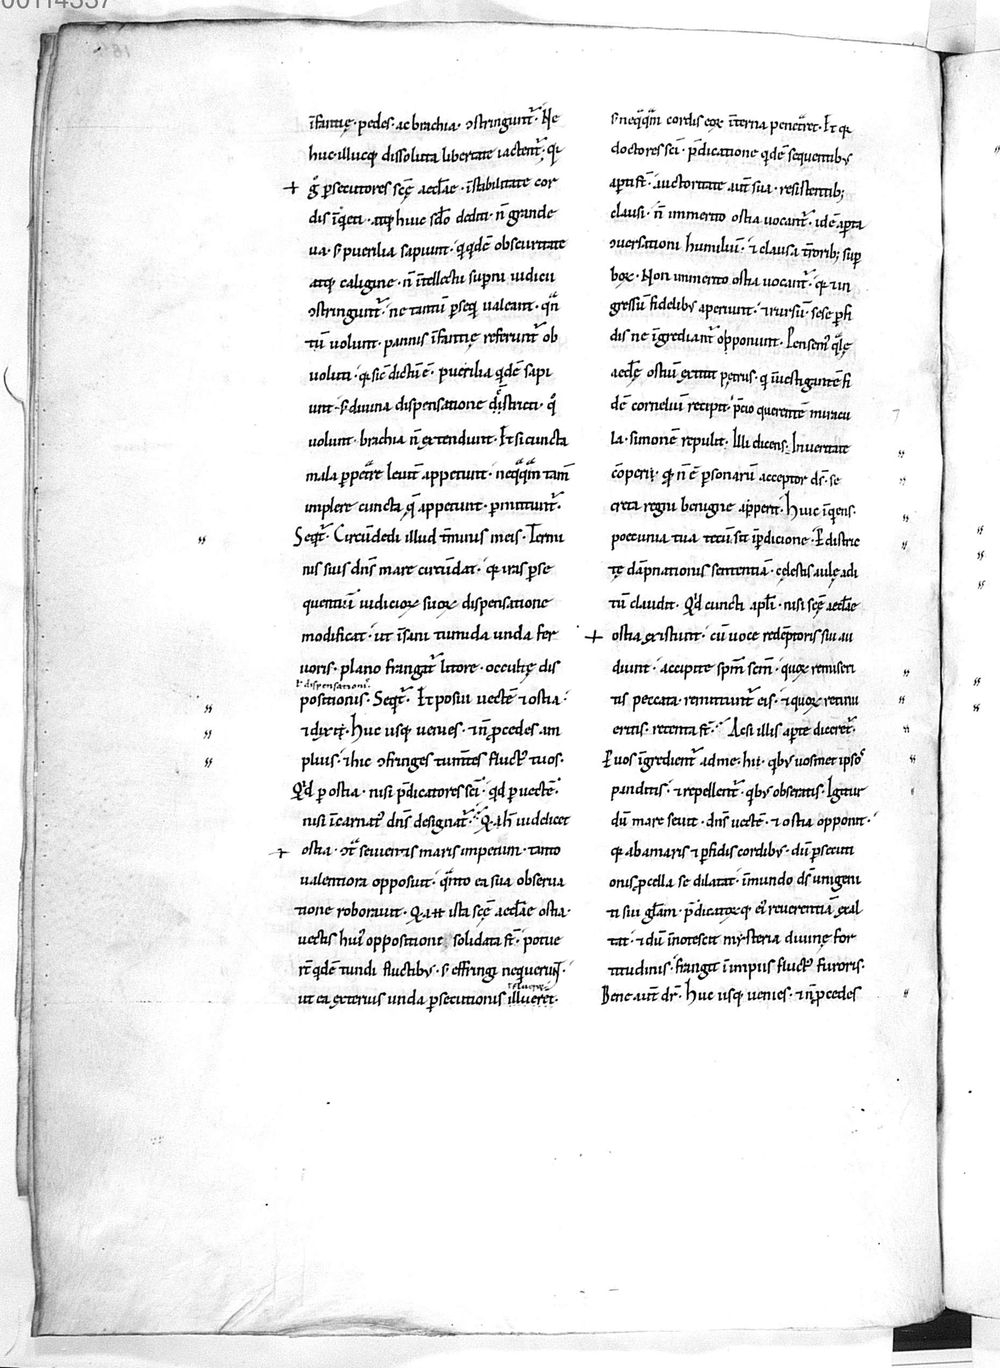 00114337
īfantię · pedes · ac brachia · ɔstringunt᷑ · Ne
huc illucq; dissoluta libertate iactent᷑ · q̄a
g̊ p̱secutores scę̄ aecl̄ae · īstabilitate cor
dis īq̊eti · atq; huic sclō dediti · n̄ grande
ua · s; puerilia sapiunt · q̇qdē obscuritate
atq; caligine · n̄ ītellectu sup̱ni iudicii
ɔstringunt᷑ · ne tantū p̱seq̇ ualeant · qn̄
tū uolunt · pannis īfantię referunt᷑ ob
uoluti · q̄a sic̄ dictū ē · puerilia qdē sapi
unt · s; diuina dispensatione districti · q̊
uolunt · brachia n̄ extendunt · Et si cuncta
mala p̱petrare leuit̄ appetunt · neq̄q̄m tam̄
implere cuncta q̄ appetunt · p̱mittunt᷑ ·
Seqt᷑ · Circūdedi illud t̄minis meis · Termi
nis suis dn̄s mare circūdat · q̄a iras p̱se
quentiū iudicioꝝ suoꝝ dispensatione
modificat · ut īsani tumida unda fer
uoris · plano frangat᷑ litore · occultę dis
ł dispensationis ·
positionis · Seqt᷑ · Et posui uectē ⁊ ostia ·
⁊ dixi · Huc usq; uenies · ⁊ n̄ p̱cedes am
plius · ⁊ hic ɔfringes tum̄tes fluctus tuos ·
Qd p̱ ostia · nisi p̄dicatores scī · qd p̱ uectē ·
nisi īcarnatus dn̄s designat᷑ · Q̄ h̄ uidelicet
ostia · ɔt̄ seuientis maris impetum · tanto
ualentiora opposuit · q̄nto ea sua obserua
tione roborauit · Q̄a ista scę̄ aecl̄ae ostia ·
uectis huius oppositione solidata st̄ · potue
r̄t qdē tundi fluctibus · s; effringi nequeruṅt ·
ł flueret
ut ea exterius unda p̱secutionis illueret ·
s; neq̄q̄m cordis eoꝝ īterna penetret · Et q̄a
doctores scī · p̄dicatione qdē sequentibus
ap̱ti st̄ · auctoritate aut̄ sua · resistentib;
clausi · n̄ immerito ostia uocant᷑ · id ē ap̱ta
ɔuersationi humiliū · ⁊ clausa t̄rorib; sup̱
boꝝ · Non immerito ostia uocant᷑ · q̄a ⁊ in
gressū fidelibus aperiunt · ⁊ rursū sese p̱fi
dis ne īgrediant᷑ opponunt · Pensem̄ q̄lę
aecl̄ę ostiū extitit petrus · q̇ īuestigantē fi
dē corneliū recipit · p̄cio querentē miracu
la · simonē repulit · Illi dicens · In ueritate
cōperi · q̄a n̄ ē p̱sonarū acceptor ds̄ · se
creta regni benigne aperit · Huic īq̇ens ·
poecunia tua tecū sit ī p̱dicione · Et distric
tę dāpnationis sententiā · cęlestis aulę adi
tū claudit · Qd cuncti apl̄i · nisi scę̄ aecl̄ae
ostia existunt · cū uoce redēptoris sui au
diunt · accipite sp̄m sc̄m · quoꝝ remiseri
tis peccata · remittunt᷑ eis · ⁊ quoꝝ retinu
eritis · retenta st̄ · Acsi illis ap̱te diceret᷑ ·
P̱ uos īgredient᷑ ad me · hii · qbus uosmet ipsos
panditis · ⁊ repellent᷑ · qbus obseratis · Igitur
dū mare seuit · dn̄s uectē · ⁊ ostia opponit ·
q̄a ab amaris ⁊ p̱fidis cordibus · dū p̱secuti
onis p̱cella se dilatat · ī mundo ds̄ unigeni
ti sui gl̄am · p̄dicatoꝝq; eius reuerentiā exal
tat · ⁊ dū īnotescit mysteria diuinę for
titudinis · frangit ī impiis fluctus furoris ·
Bene aut̄ dr̄ · Huc usq; uenies · ⁊ n̄ p̱cedes